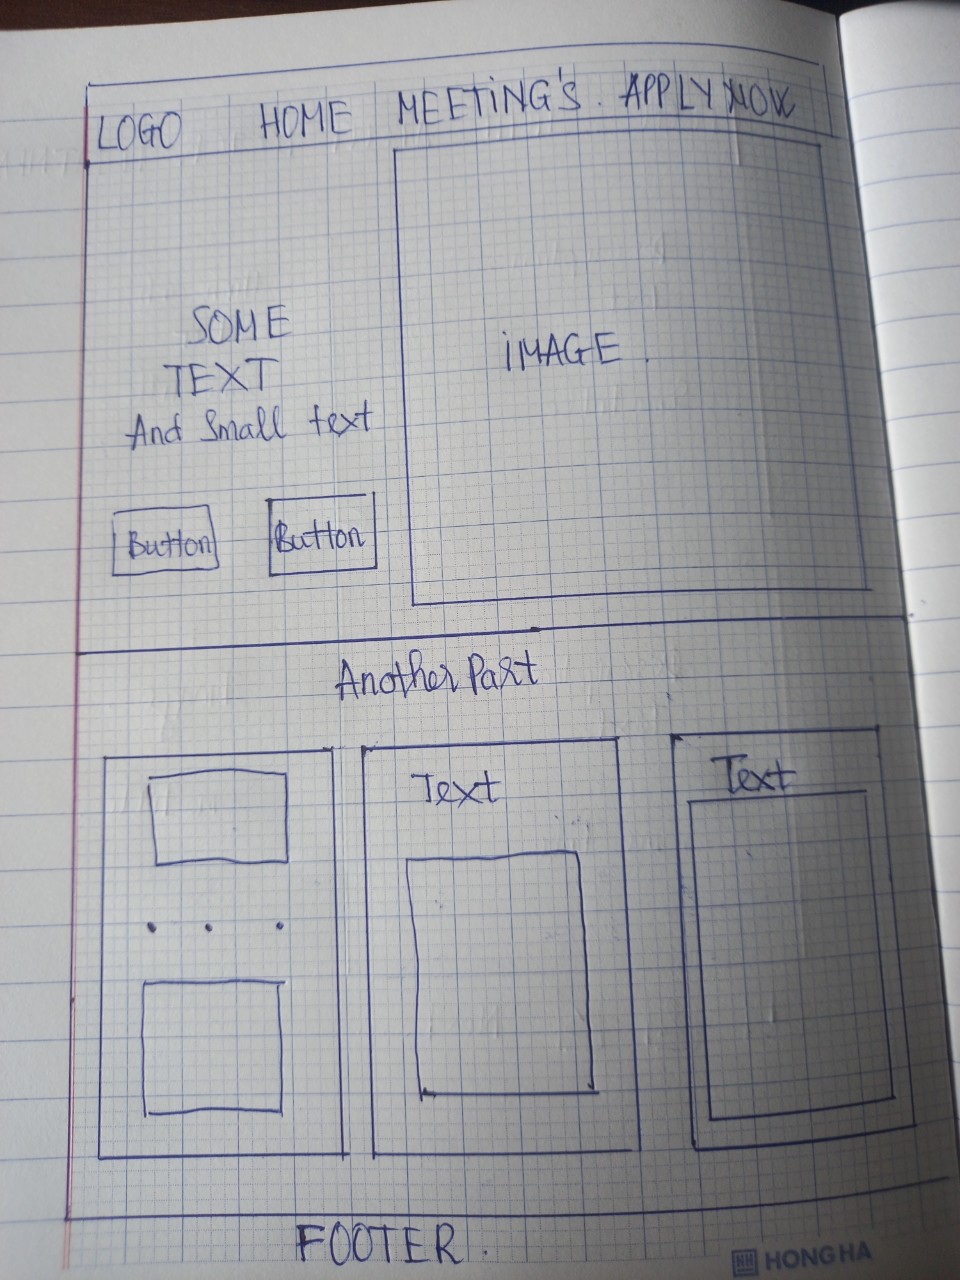 LOGO HOME MEETING'S. APPLY NOW
SOME
TEXT
And Small text
IMAGE.
Button Button
Another Part
Text Text
FOOTER.
HH HONG HA